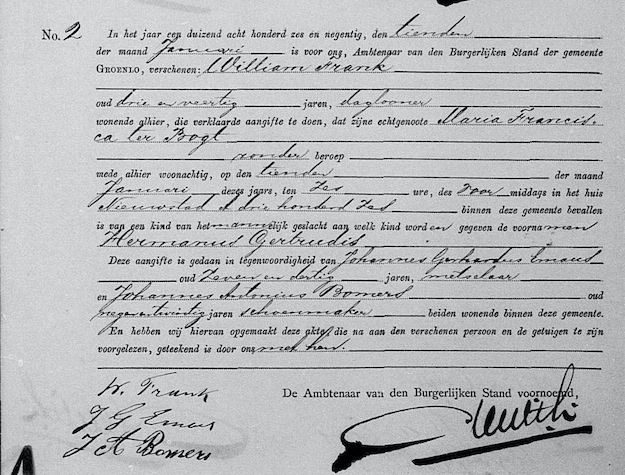 No. 2 In het jaar een duizend acht honderd zes en negentig, den tienden
der maand Januari is voor ons, Ambtenaar van den Burgerlijken Stand der gemeente
GROENLO, verschenen: William Frank
oud drie en veertig jaren, daglooner
wonende alhier, die verklaarde aangifte te doen, dat zijne echtgenoote Maria Francis-
ca ter Bogt
zonder beroep
mede alhier woonachtig, op den tienden der maand
Januari dezes jaars, ten Zes ure, des Voor middags in het huis
Nieuwstad A drie honderd Zes binnen deze gemeente bevallen
is van een kind van het mannelijk geslacht aan welk kind worden gegeven de voornamen
Hermanus Gertrudis
Deze aangifte is gedaan in tegenwoordigheid van Johannes Gerhardus Emaus
oud Zeven en dertig jaren, metselaar
en Johannes Antonius Bomers oud
negenentwintig jaren schoenmaker beiden wonende binnen deze gemeente.
En hebben wij hiervan opgemaakt deze akte, die na aan den verschenen persoon en de getuigen te zijn
voorgelezen, geteekend is door ons met hen.
W. Frank
De Ambtenaar van den Burgerlijken Stand voornoemd,
J G Emaus
J A Bomers